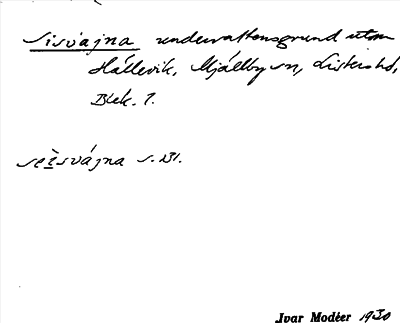 Sisvajna undervattensgrund utom
Hällevik, Mjällby sn, Listers hd,
Blek. l.
s. 131.
Ivar Modéer 1930